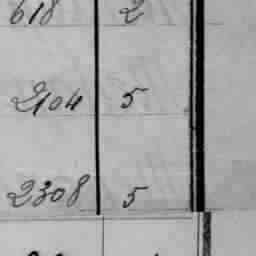 618 2
2104 5
2308 5